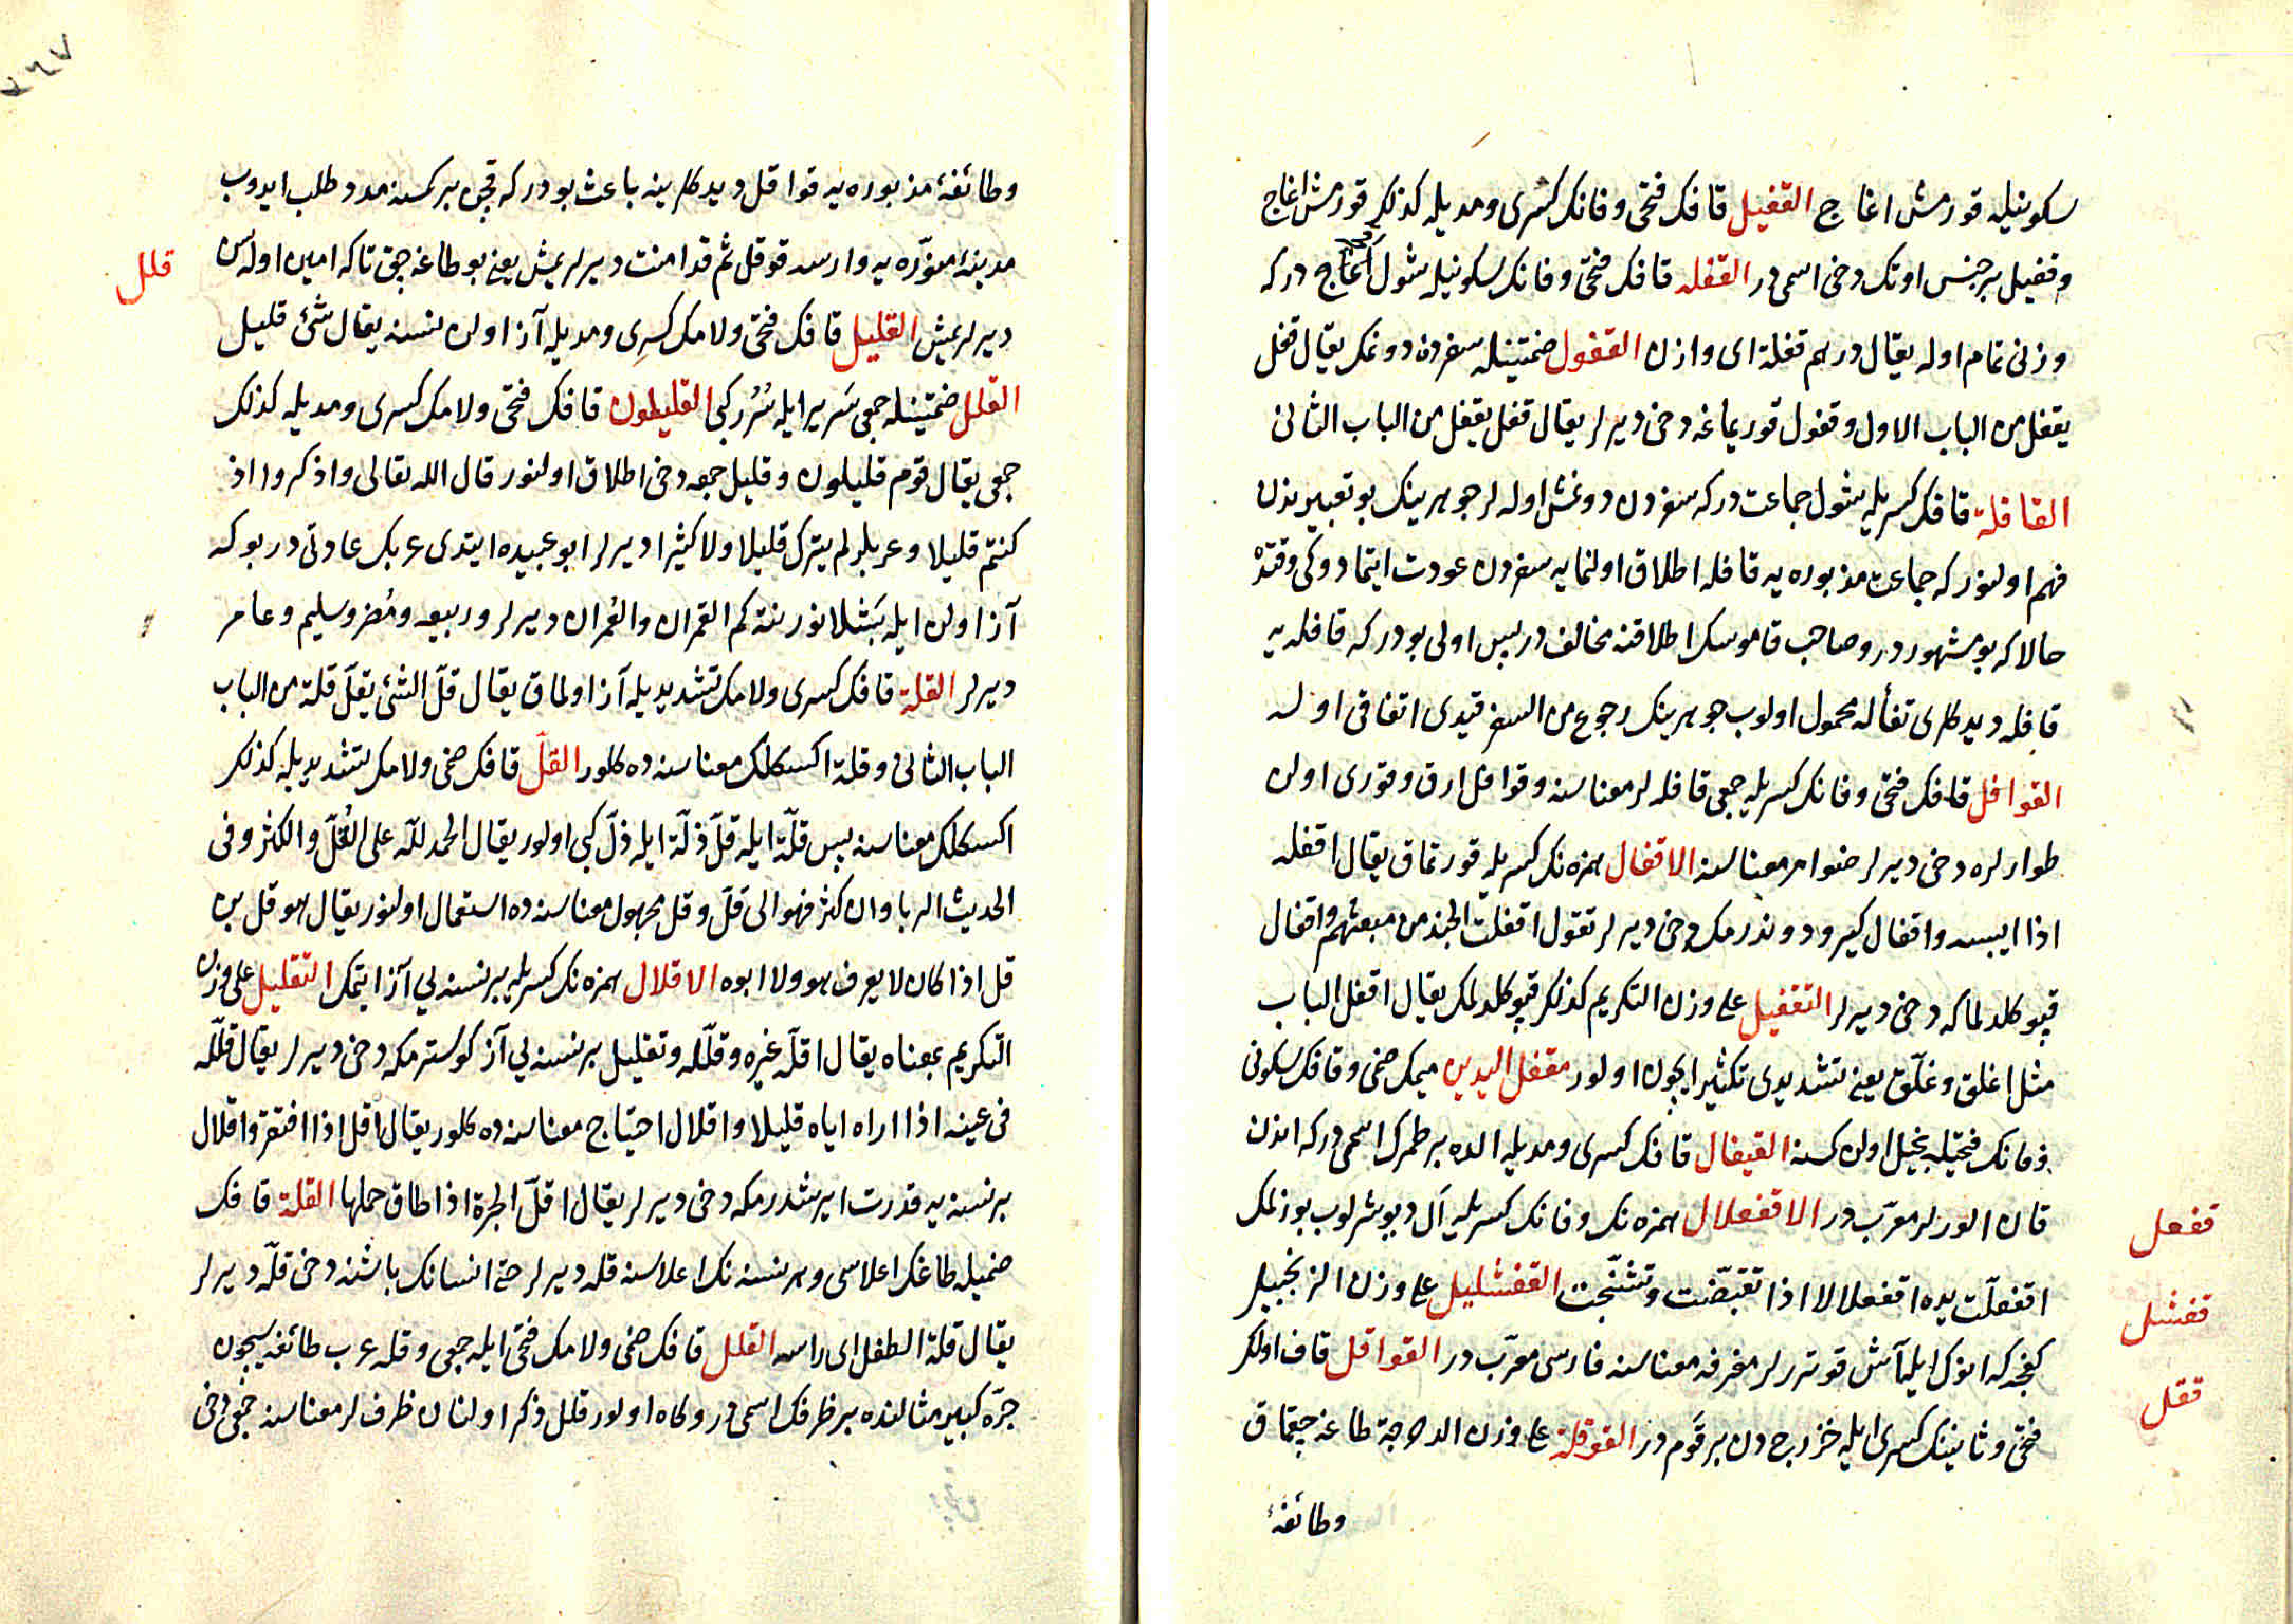 سكونيله قورمش اغاج القفيل قافك فتحى وفانك كسرى ومديله كذلك قورمش اغاج
وقفيل بر جنس اوتك دخى اسمى در القفله قافك فتحى وفانك سكونيله شول اغاج در كه
وزنى تمام اوله يقال درهم قفلة اى وازن القفول ضمتينله سفردن دونمك يقال قفل
يقفل من الباب الاول وقفول قوريماغه دخى ديرلر يقال قفل يقفل من الباب الثانى
القافلة قافك كسريله شول جماعت در كه سفردن دونمش اوله لر جوهرينك بو تعبيريندن
فهم اولنور كه جماعت مذبوره يه قافله اطلاق اولنمايه سفردن عودت ايتمادوكى وقتده
حالا كه بو مشهور در وصاحب قاموسك اطلاقنه مخالف در پس اولى بودر كه قافله يه
قافله ديدكلرى تفأله محمول اولوب جوهرينك رجوع من السفر قيدى اتفاقى اوله
القوافل قافك فتحى وفانك كسريله جمعى قافله لر معناسنه وقوافل ارق وقورى اولن
طوارلره دخى ديرلر ضوامر معناسنه الاقفال همزه نك كسريله قورتماق يقال اقفله
اذا ايبسه واقفال كيرو دوندرمك دخى ديرلر تقول اقفلت الجند من مبعثهم واقفال
قپو كلدلماكه دخى ديرلر التقفيل على وزن التكريم كذلك قپو كلدلمك يقال اقفل الباب
مثل اغلق وغلّق يعنى تشديدى تكثير ايچون اولور مقفل اليدين ميمك ضمى وقافك سكونى
وفانك فتحيله بخيل اولن كسنه القيفال قافك كسرى ومديله الده بر طمرك اسمى در كه اندن
قان الورلر معرّب در الاقفعلال همزه نك وفانك كسريله آل ديوشرلوب بوزلمك
اقفعلّت يده اقفعلالا اذا تقبّضت وتشنّجت القفشليل على وزن الزنجبيل
كفچه كه انوكله آش قوتررلر مغرفه معناسنه فارسى معرّب در القواقل قاف اولك
فتحى وثانينك كسرى ايله خزرج دن بر قوم در القوقلة على وزن الدحرجة طاغه چقماق
وطائفهٔ
قفعل
قفشل
ققل
وطائفهٔ مذبوره يه قواقل ديدكلرينه باعث بودر كه قچن بر كمسنه مدد طلب ايدوب
مدينهٔ منوّره يه وارسه قوقل ثم قد امنت ديرلريمش يعنى بو طاغه چق تا كه امين اولسن
ديرلريمش القليل قافك فتحى ولامك كسرى ومديله آز اولن نسنه يقال شئ قليل
القلل ضمتينله جمعى سَرير ايله سُرُر كبى القليلون قافك فتحى ولامك كسرى ومديله كذلك
جمعى يقال قوم قليلون وقليل جمعه دخى اطلاق اولنور قال الله تعالى واذكروا اذ
كنتم قليلا وعربلر لم يترك قليلا ولا كثيرا ديرلر ابو عبيده ايتدى عربك عادتى در بو كه
آز اولن ايله بَشلانور نته كم القمران والعُمران ديرلر وربيعه ومُضر وسليم وعامر
ديرلر القلة قافك كسرى ولامك تشديديله آز اولماق يقال قلّ الشئ يقلّ قلة من الباب
الباب الثانى وقلة اكسكلك معناسنه ده كلور القلّ قافك ضمى ولامك تشديديله كذلك
اكسكلك معناسنه پس قلّة ايله قلّ ذلّة ايله ذلّ كبى اولور يقال الحمد لله على القُلّ والكثر وفى
الحديث الربا وان كثر فهو الى قلّ وقل مجهول معناسنه ده استعمال اولنور يقال هو قل بن
قل اذا كان لا يعرف هو ولا ابوه الاقلال همزه نك كسريله بر نسنه يى آز ايتمك التقليل على وزن
التكريم بمعناه يقال اقلّه غيره وقلّله وتقليل بر نسنه يى آز كوسترمكه دخى ديرلر يقال قلّله
فى عينه اذا اراه اياه قليلا واقلال احتياج معناسنه ده كلور يقال اقل اذا افتقر واقلال
بر نسنه يه قدرت ايرشدرمكه دخى ديرلر يقال اقلّ الجرة اذا طاق حملها القلة قافك
ضميله طاغك اعلاسى وهر نسنه نك اعلاسنه قله ديرلر حتى انسانك باشنه دخى قلّه ديرلر
يقال قلة الطفل اى راسه القلل قافك ضمى ولامك فتحى ايله جمعى وقله عرب طائفه سيچون
جرّه كبير مثالنده بر ظرفك اسمى در وكاه اولور قلل ذكر اولنان ظرف لر معناسنه جمعى دخى
قلل
٧٦٧